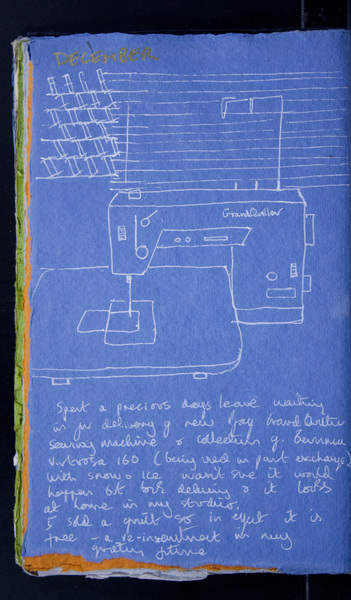 DECEMBER
GrandQuilter
Spent a precious days leave waiting
in for delivery of new Grand Quilter
sewing machine & collection of Bernina
virtuosa 160 (being used in part exchange)
with snow & ice wasn't sure it would
happen but both delivery & it looks
at home in my studio.
I sold a quilt so in effect it is
free - a re-investment in my
quilting future